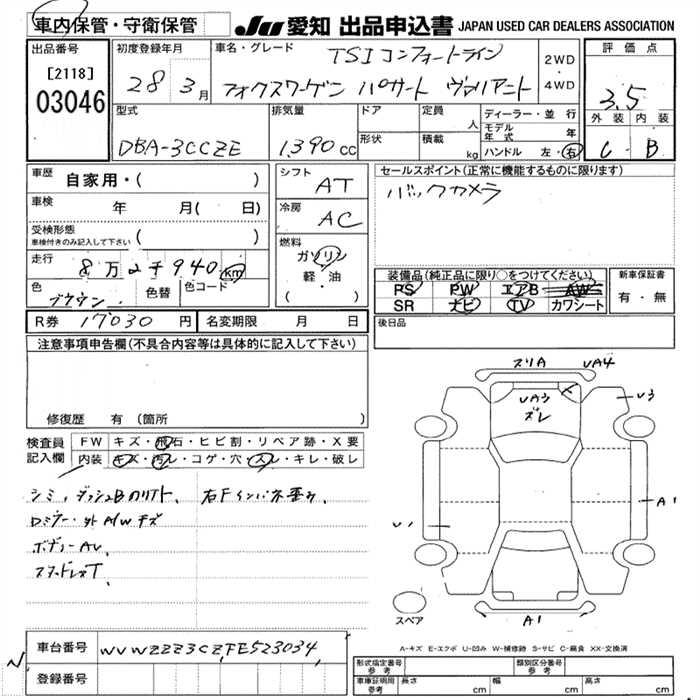 車内保管・守衛保管
JU 愛知 出品申込書 JAPAN USED CAR DEALERS ASSOCIATION
出品番号
[2118]
03046
初度登録年月
28 3月
車名・グレード
TSI コンフォートライン
フォクスワーゲン パサート ヴァリアント
2WD
4WD
評価点
3.5
外装 内装
C - B
型式
DBA-3CCZE
排気量
1390 cc
ドア
形状
定員 人
積載 kg
ディーラー・並行
モデル年式 年
ハンドル 左・右
車歴 自家用・( )
車検 年 月( 日)
受検形態
車検付きのみ記入して下さい ( )
走行 8万2千940km
色 ブラウン 色替 色コード
R券 17030円 名変期限 月 日
シフト AT
冷房 AC
燃料
ガソリン
軽・油
( )
セールスポイント(正常に機能するものに限ります)
バックカメラ
装備品(純正品に限り○をつけてください)
PS PW エアB AW
SR ナビ TV カワシート
新車保証書
有・無
後日品
注意事項申告欄(不具合内容等は具体的に記入して下さい)
修復歴 有(箇所 )
検査員記入欄
FW キズ・飛石・ヒビ割・リペア跡・X要
内装 キズ・汚レ・コゲ・穴・スレ・キレ・破レ
シミ、ダッシュB
AWキズ
スタッドレスT、
ズリA UA4
UA3
ズレ
U3
A1
U1
A1
スペア
A-キズ E-エクボ U-凹み W-補修跡 S-サビ C-腐食 XX-交換済
車台番号 WVWZZZ3CZFE523034
登録番号
形式指定番号 参考
類別区分番号 参考
車庫証明用 参考 長さ cm 幅 cm 高さ cm